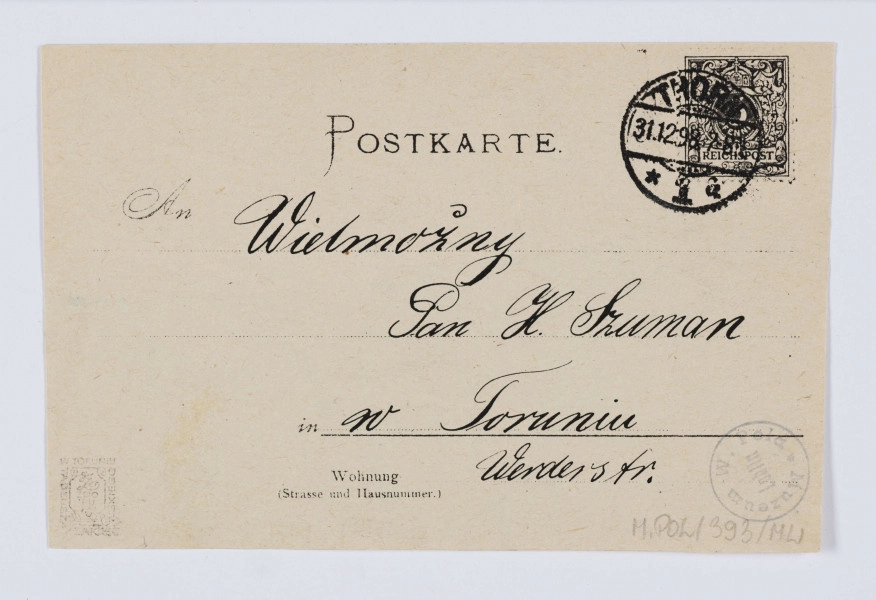 POSTKARTE.
THORN
31.12.98.
* 1 d
REICHSPOST
An Wielmożny
Pan H. Szuman
in w Toruniu
Werderstr.
Wohnung
(Strasse und Hausnummer.)
M.POL/393/ML